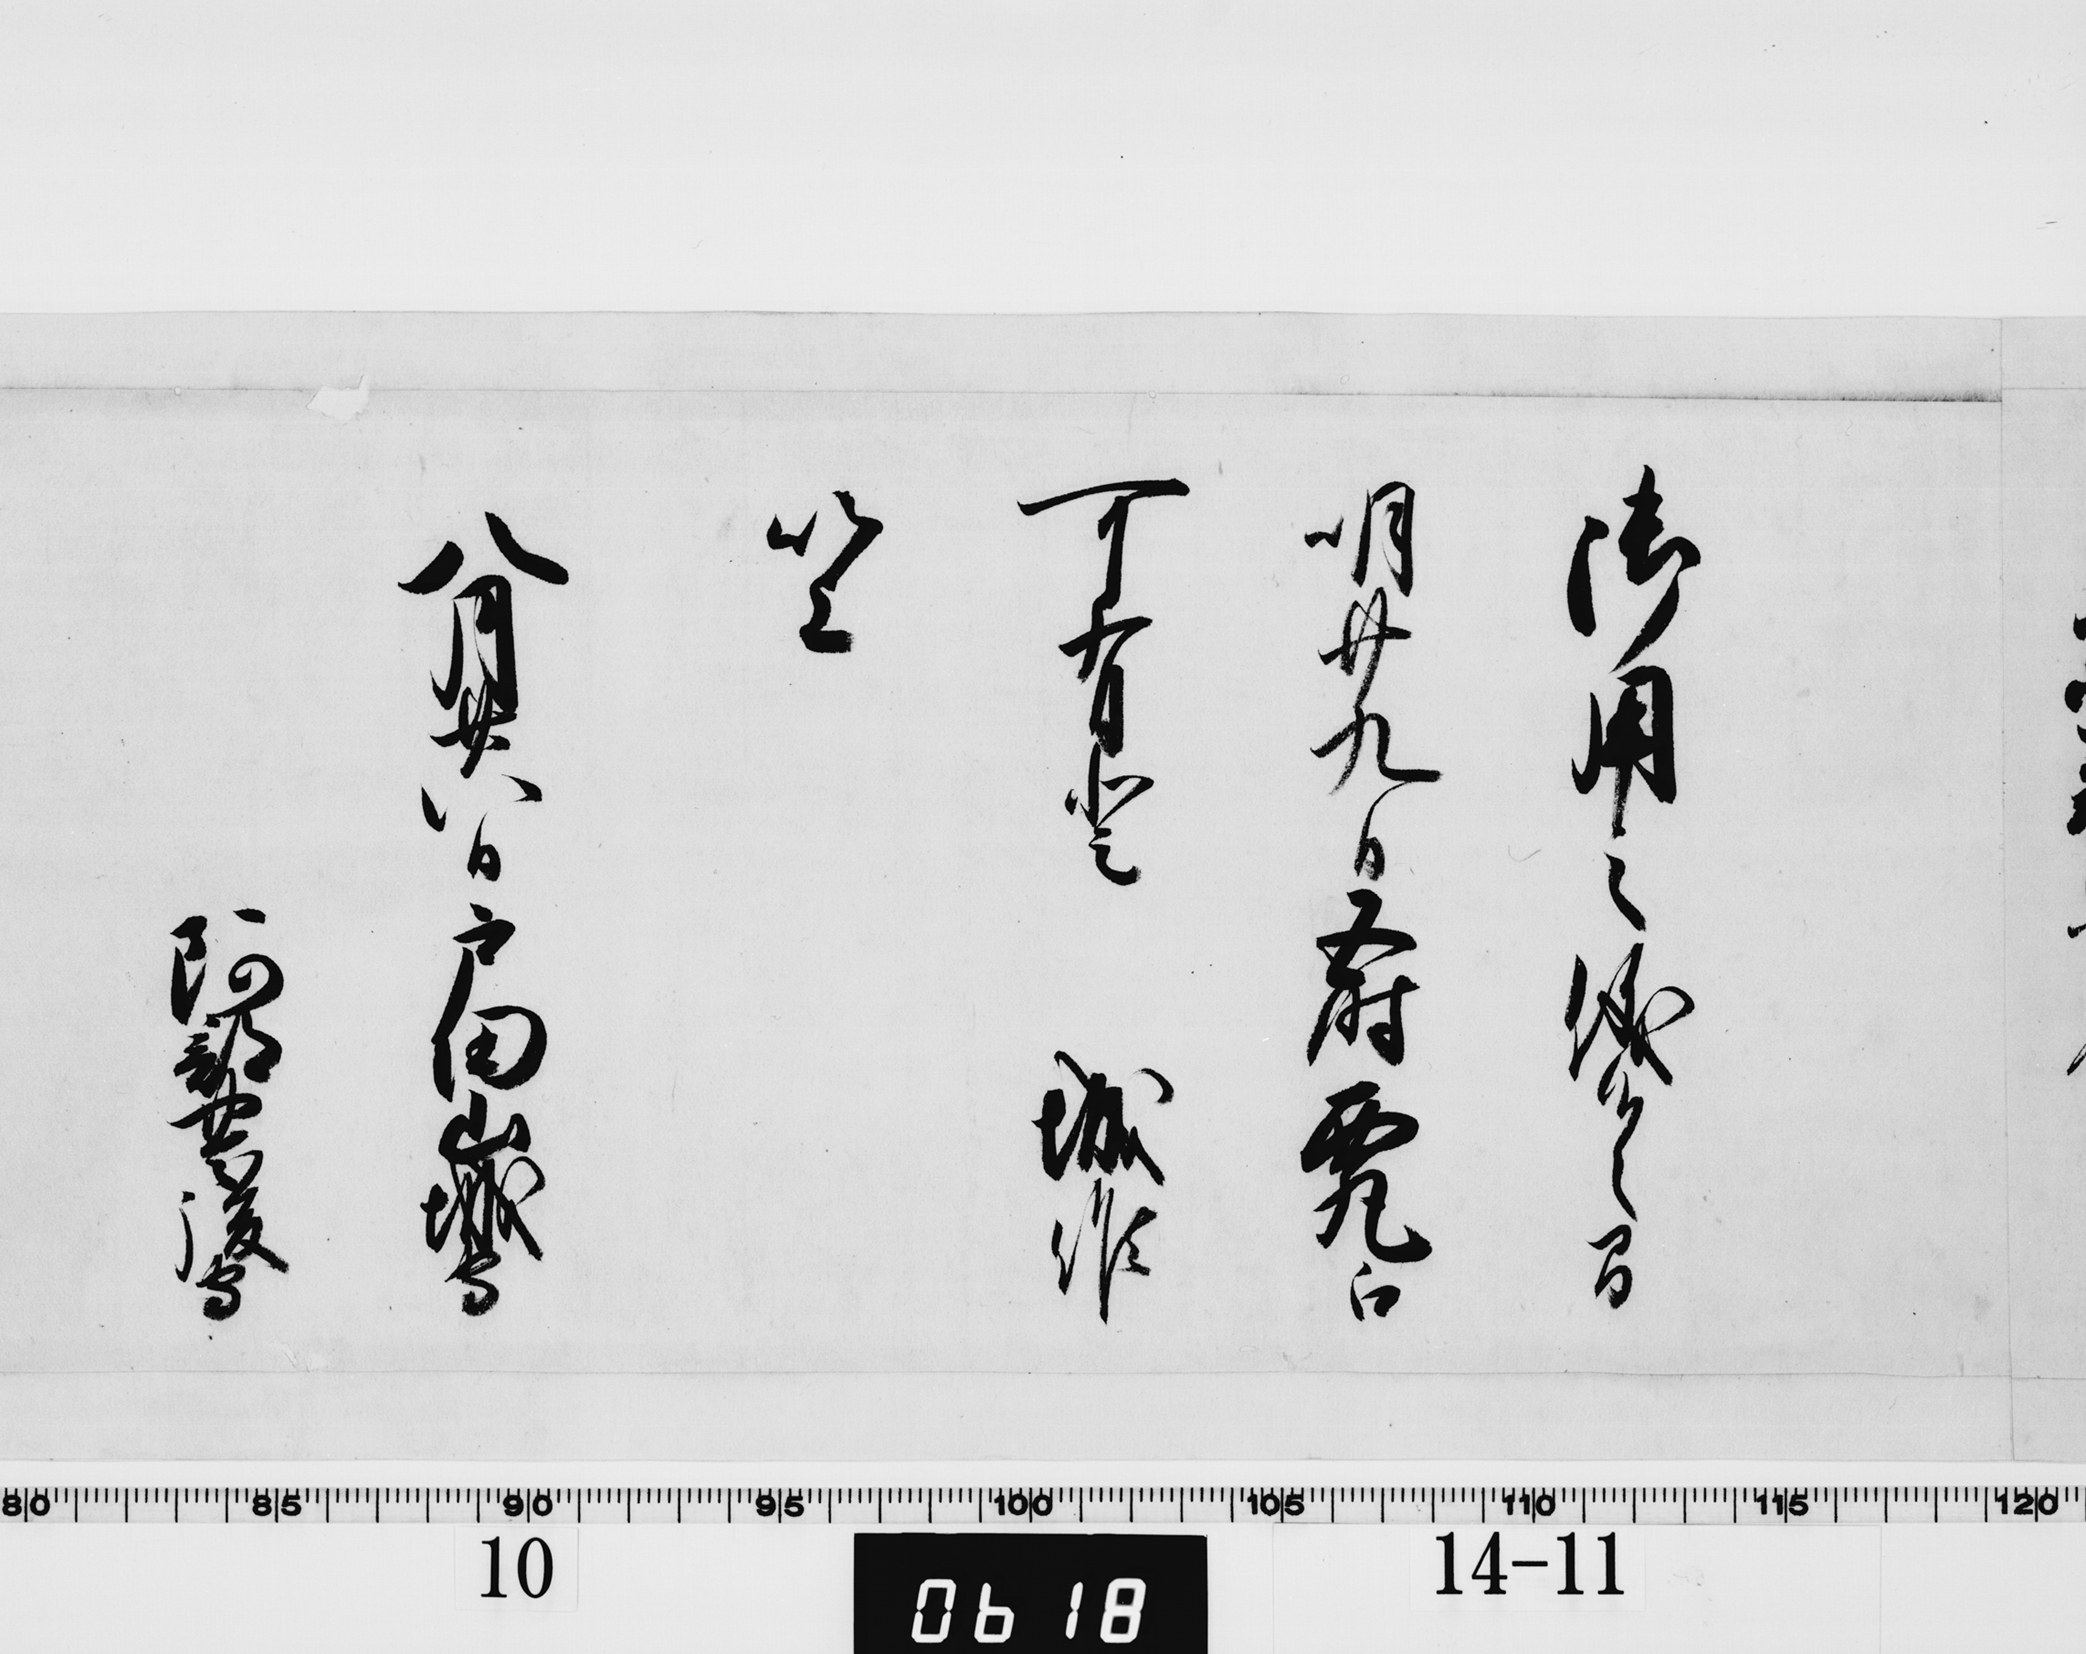 御用之儀候之間
明廿九日五時西丸江
可有登 城候
以上
八月廿八日戸田山城守
阿部豊後守
80 85 90 95 100 105 110 115 120
10
0618
14-11